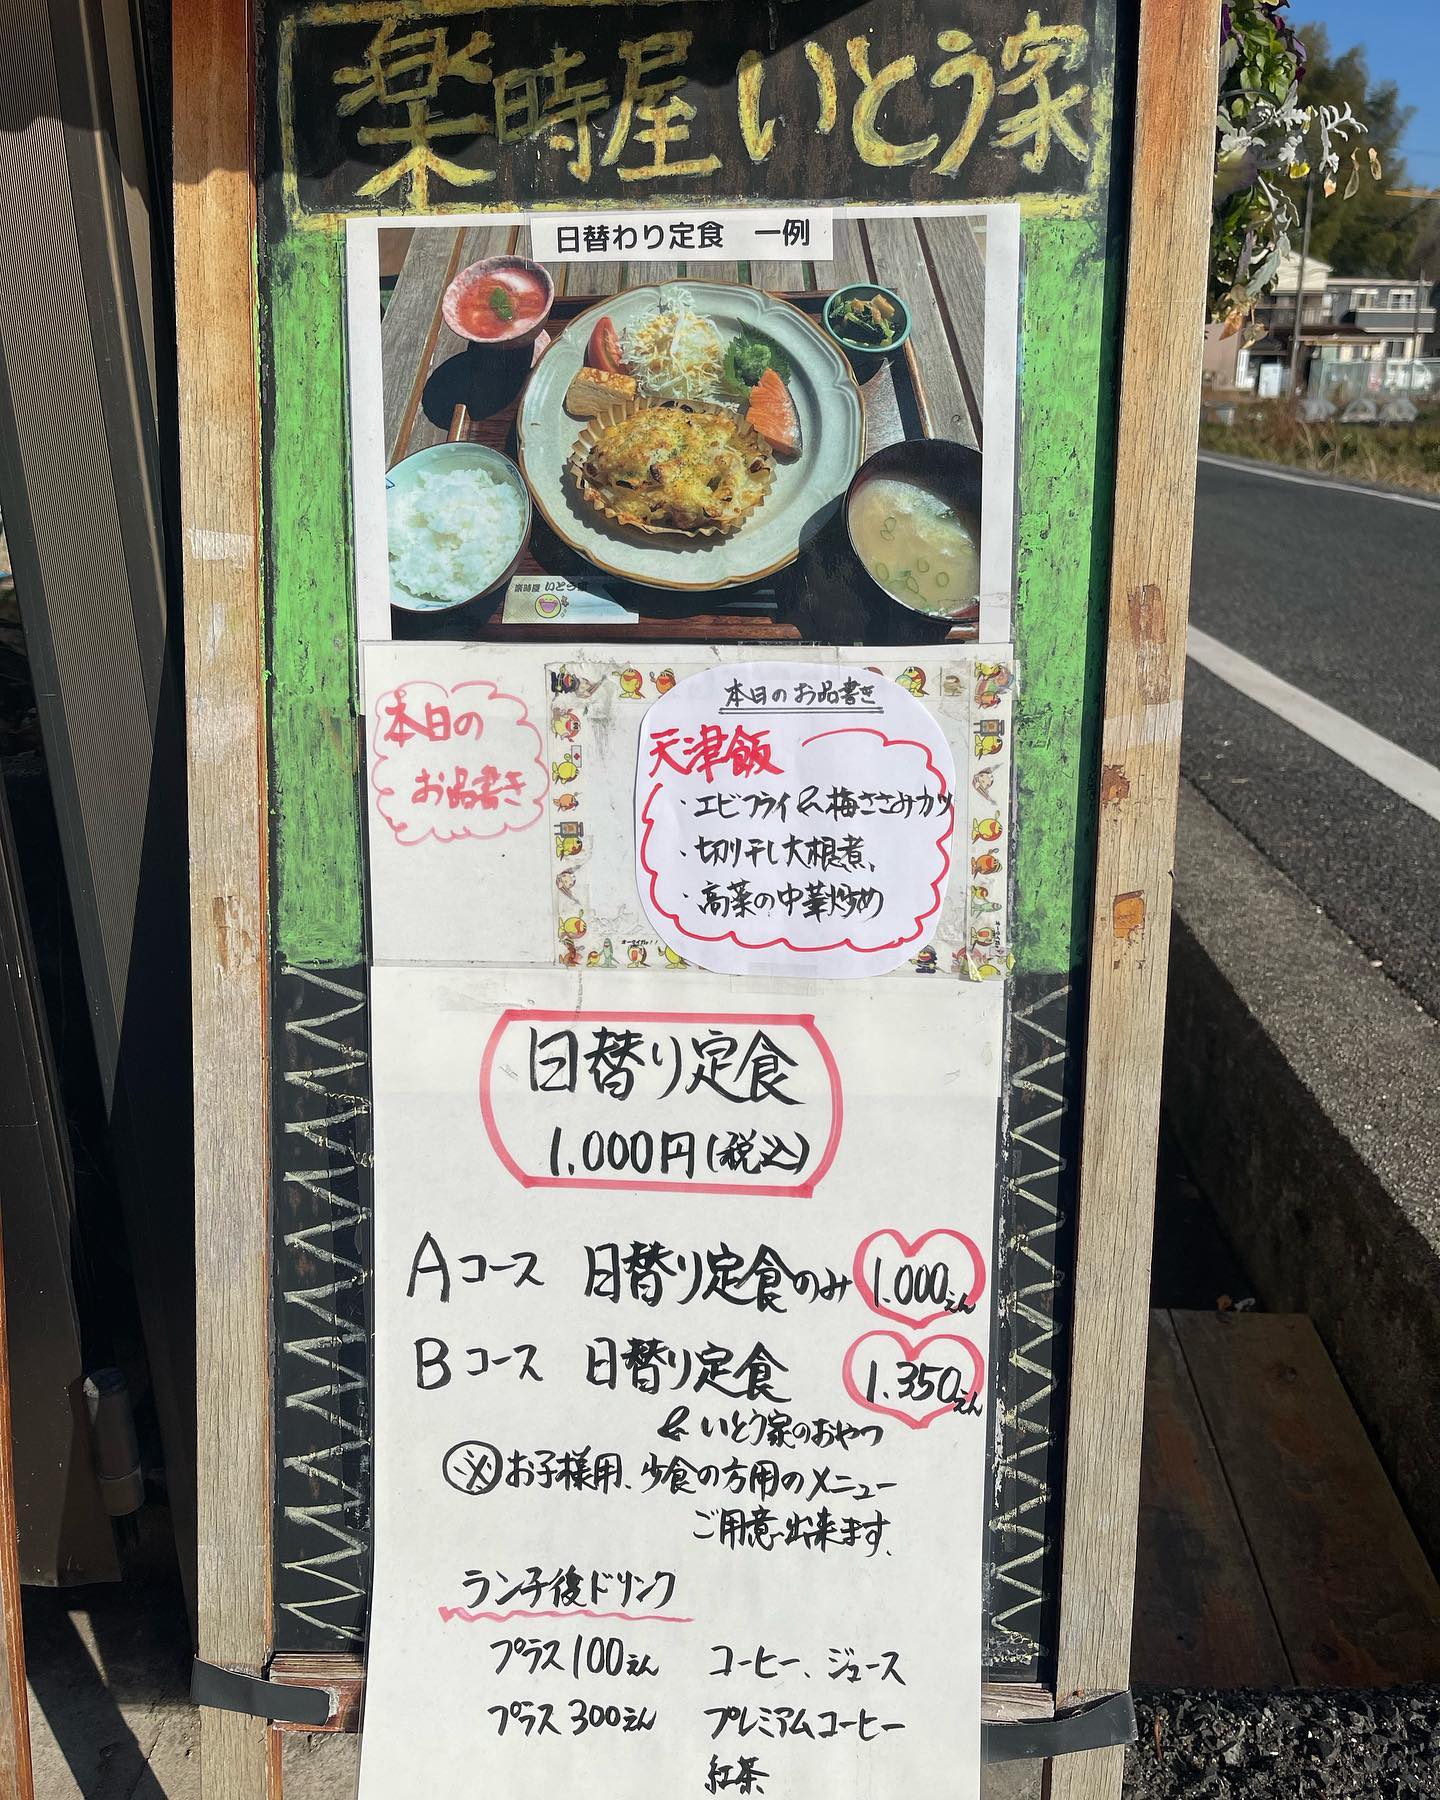 楽時屋 いとう家
日替わり定食　一例
楽時屋 いとう家
本日の
お品書き
本日のお品書き
天津飯
・エビフライ&梅ささみカツ
・切り干し大根煮、
・高菜の中華炒め
日替り定食
1,000円(税込)
Aコース 日替り定食のみ 1.000えん
Bコース 日替り定食 1.350えん
& いとう家のおやつ
※お子様用、少食の方用のメニュー
ご用意出来ます、
ランチ後ドリンク
プラス100えん コーヒー、ジュース
プラス300えん プレミアムコーヒー
紅茶